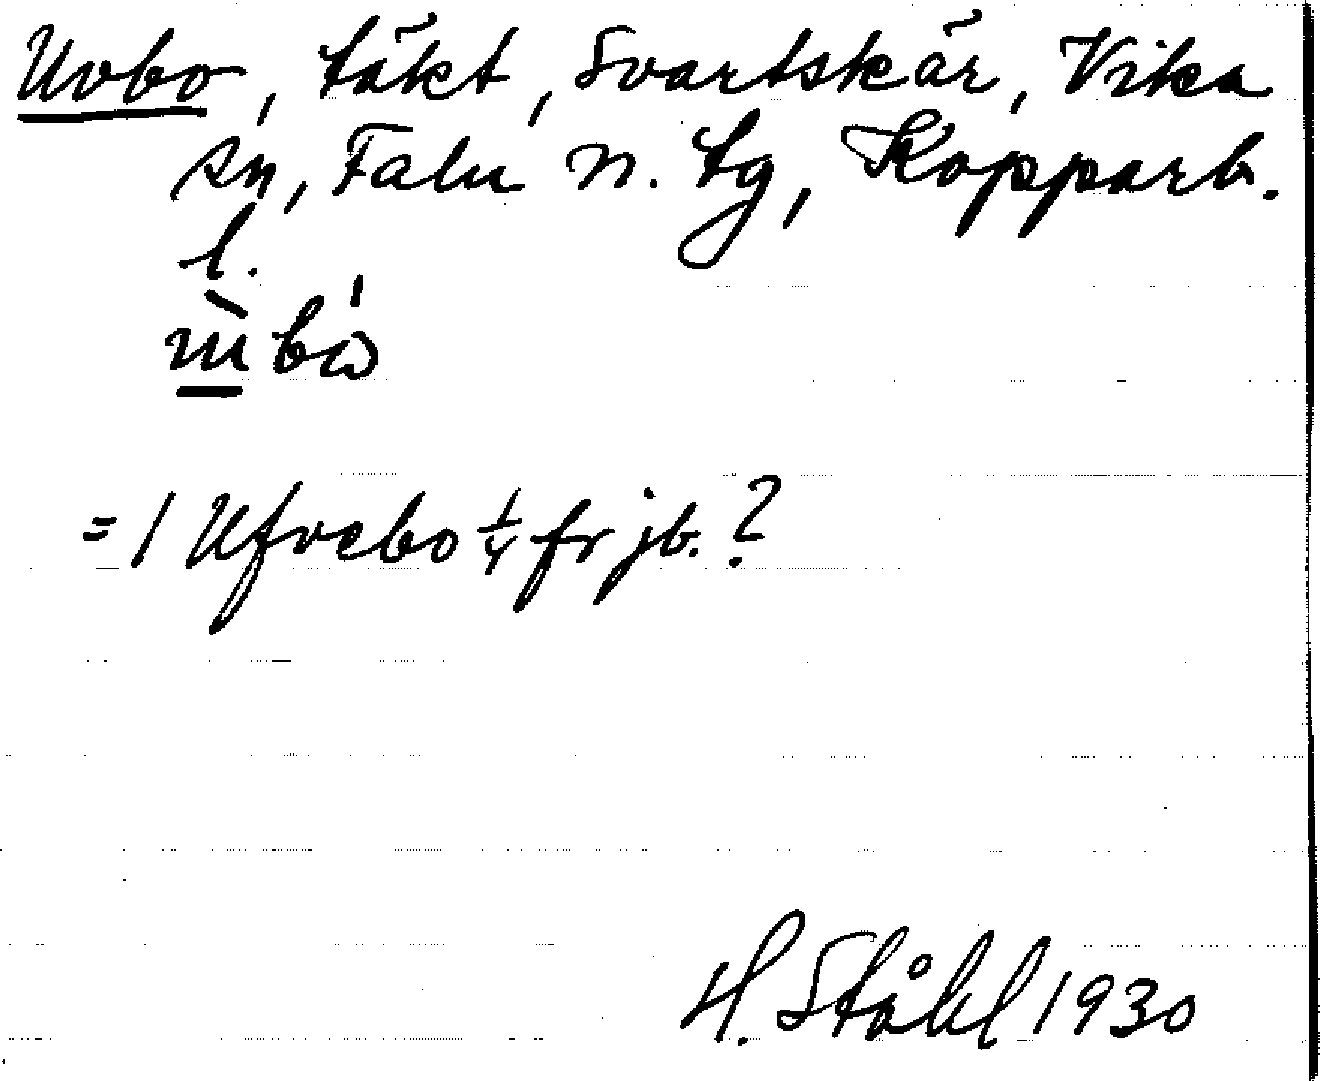 Uvbo, täkt, Svartskär, Vika
sn, Falu n. tg, Kopparb.
l.
= 1 Ufvebo 1/4 fr jb.?
H. Ståhl 1930